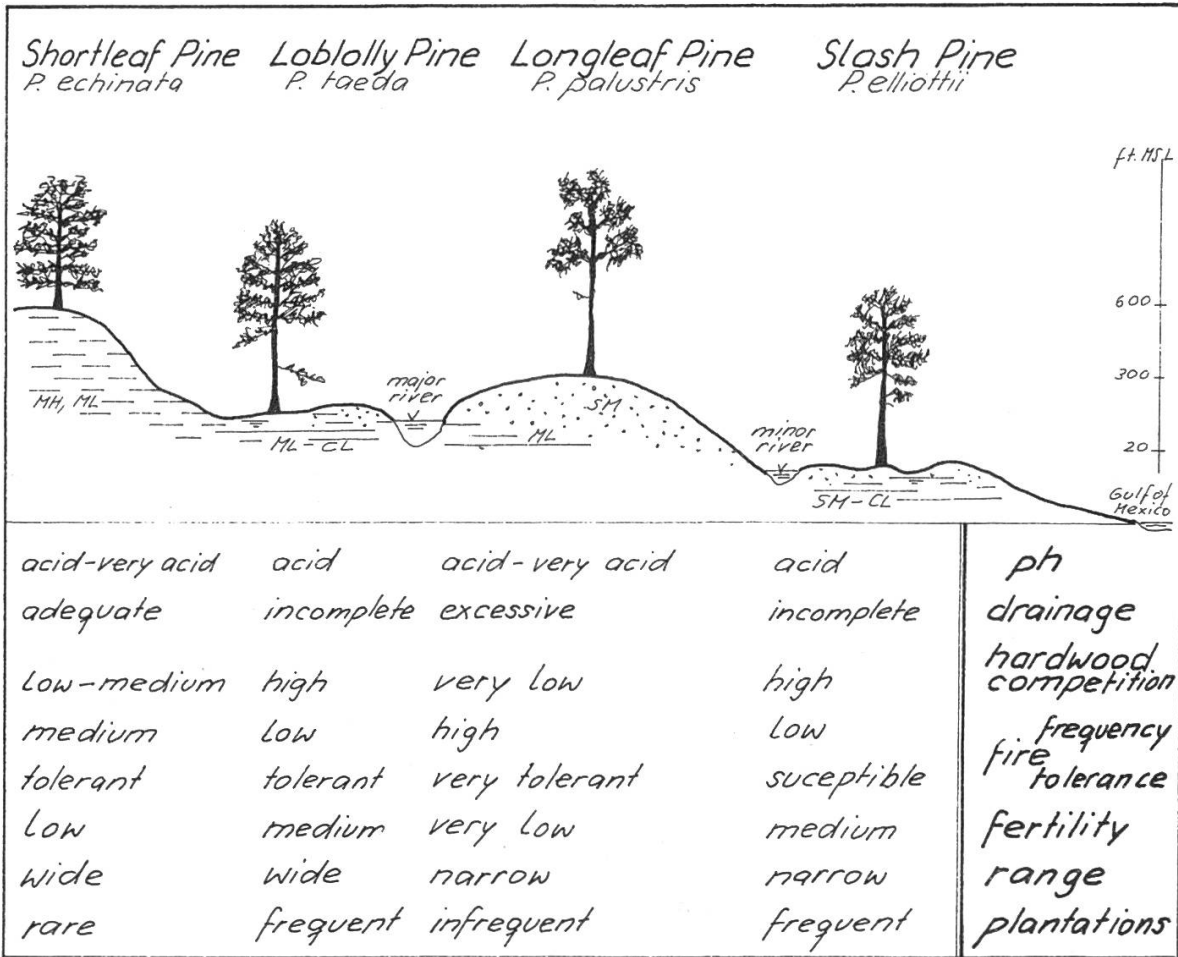 Shortleaf Pine Loblolly Pine Longleaf Pine Slash Pine
P. echinata P. taeda P. palustris P. elliottii
ft. MSL
600
300
20
Gulf of
Mexico
major
river
minor
river
MH, ML
ML-CL
ML
SM
SM-CL
acid-very acid acid acid-very acid acid ph
adequate incomplete excessive incomplete drainage
low-medium high very low high hardwood
competition
medium low high low fire frequency
tolerant tolerant very tolerant suceptible tolerance
low medium very low medium fertility
wide wide narrow narrow range
rare frequent infrequent frequent plantations